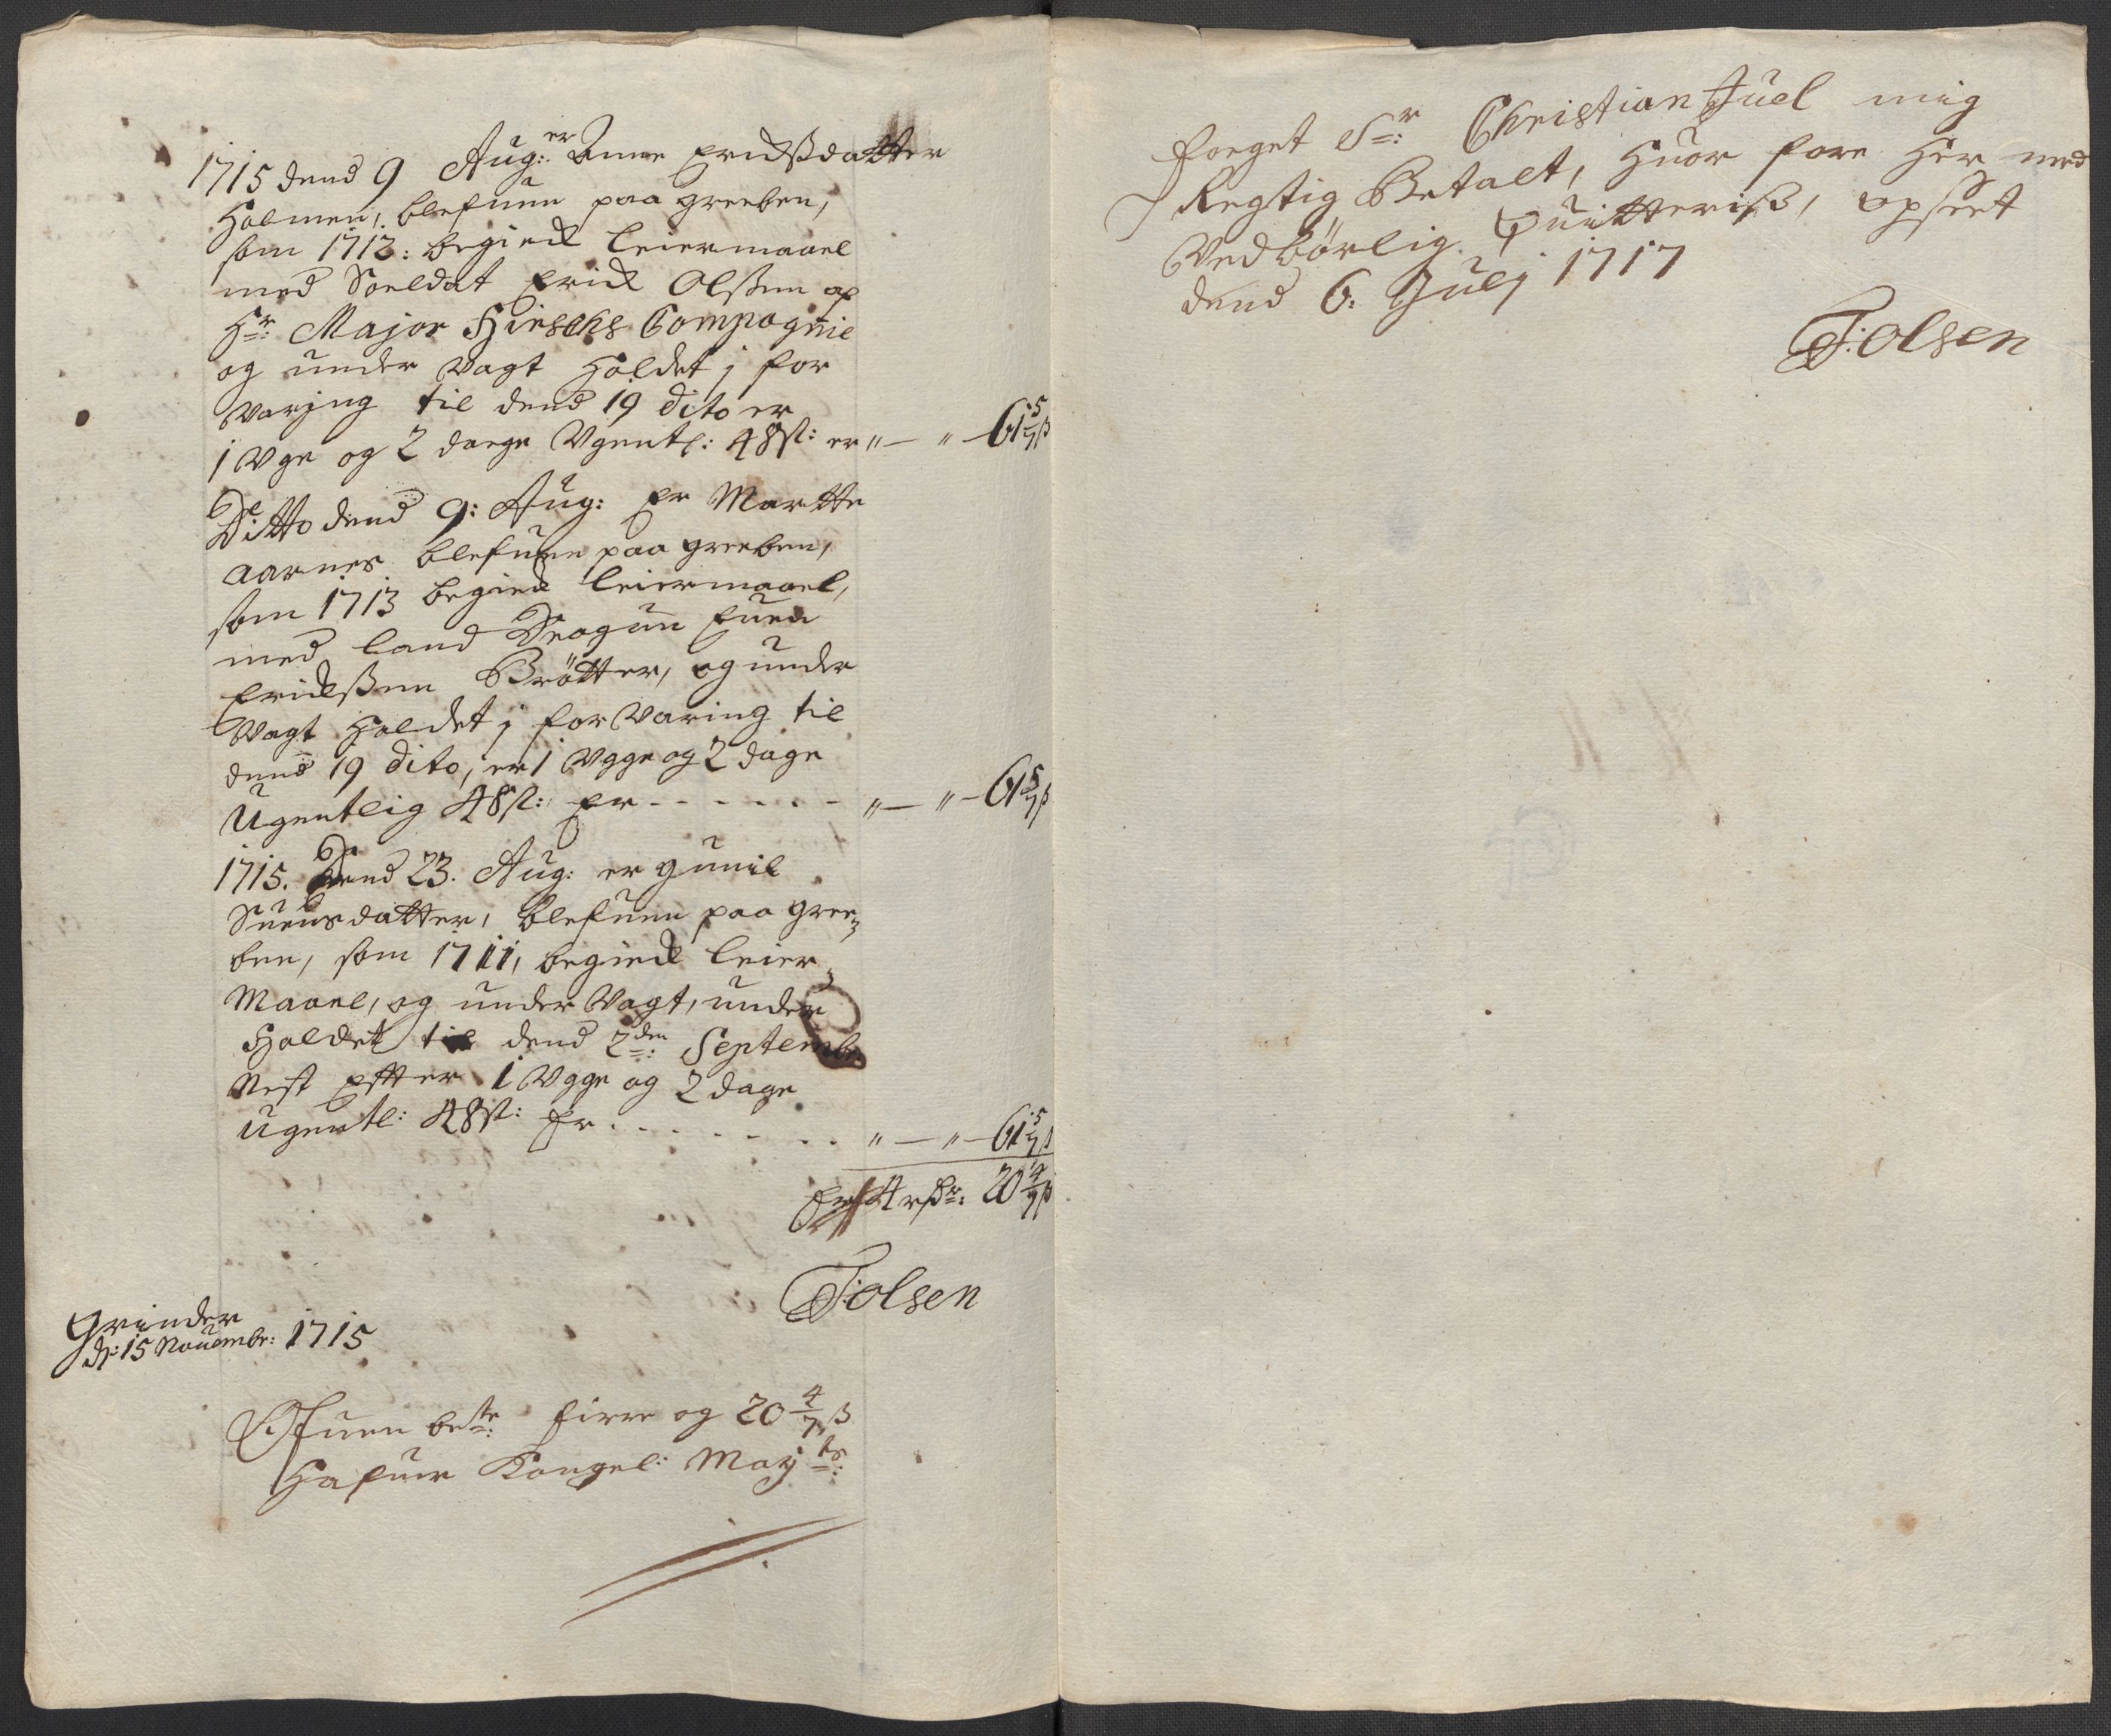 1715 dend 9 Aug: er Anne Erichsdatter
Holmen, blefuen paa greeben,
som 1712: begick leiermaael
med Soeldat Erick Olssen af
Hr: Major Hirschs Compagnie
og under Vagt holdet j for
Varjng til dend 19 dito er
1 Vge og 2 dage Vgentl: 48 s: er " — " — 61 5/7 ß
Ditto dend 9: Aug: Er Martte
Aarnes blefuen paa greeben,
som 1713 begick leiermaael,
med land Dragun Euen
Erickssen Brötter, og under
Vagt Holdet j forVaring til
dend 19 dito, er 1 Vgge og 2 dage
Ugentlig 48 s: Er - - - - - - " — " — 61 5/7 ß
1715. Dend 23. Aug: er gunil
Suensdatter, blefuen paa gree
ben, som 1711, begick leier
Maael, og under Vagt, under
Holdet til dend 2den: Septembr:
Nest Efter 1 Vgge og 2 dage
Ugentl: 48 s: Er - - - - - - " — " — 61 5/7 ß
Er 4 rdr: 20 4/7 ß
T: Olsen
Grinder
d: 15 Nouembr: 1715
Ofuen bete: firre og 20 4/7 ß
Hafuer Kongel: Mayts:
foeget Sr: Christian Juel mig
Regtig Betalt, Huor fore Her med
Vedbörlig Quitteriß, apseet
dend 6: Julj 1717
T: Olsen